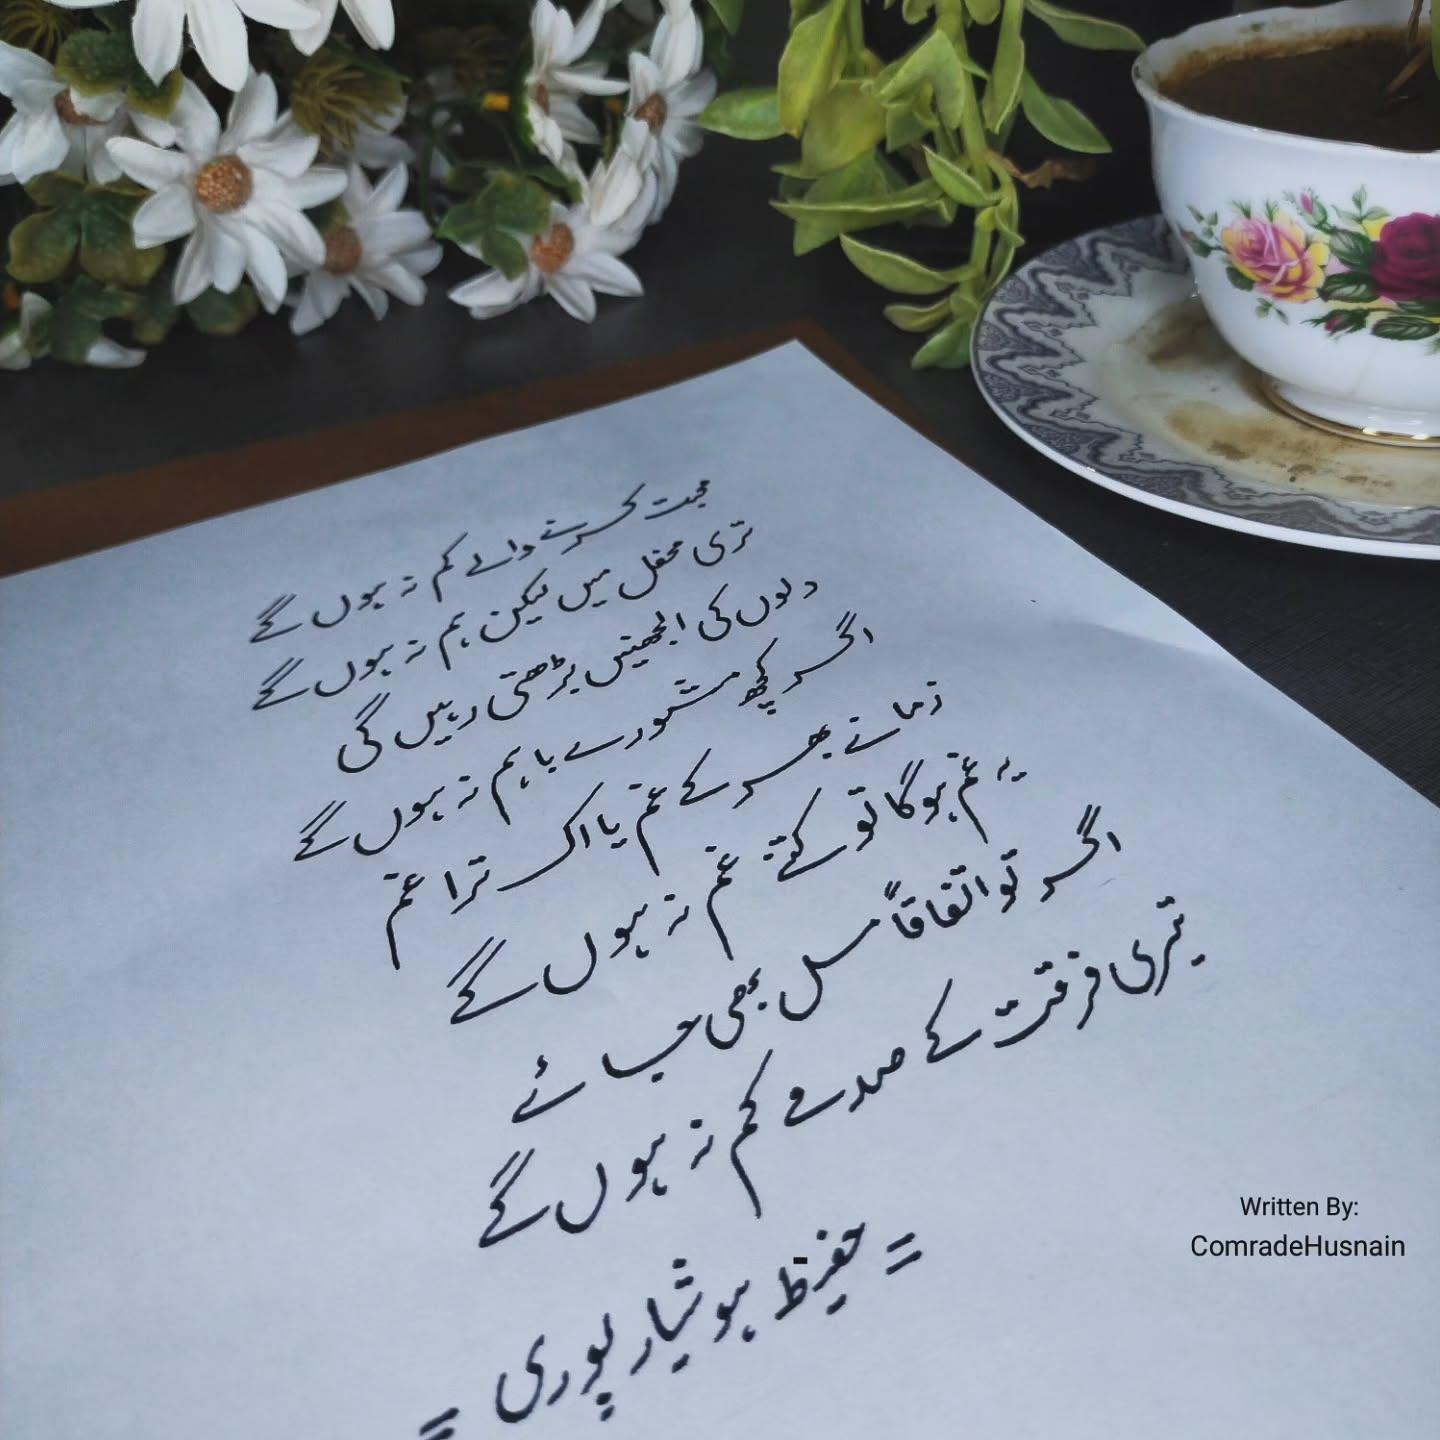 محبت کرنے والے کم نہ ہوں گے
تری محفل میں لیکن ہم نہ ہوں گے
دلوں کی الجھنیں بڑھتی رہیں گی
اگر کچھ مشورے باہم نہ ہوں گے
زمانے بھر کے غم یا اک ترا غم
یہ غم ہوگا تو کتنے غم نہ ہوں گے
اگر تو اتفاقاً مل بھی جائے
تیری فرقت کے صدمے کم نہ ہوں گے
= حفیظ ہوشیارپوری =
Written By:
ComradeHusnain